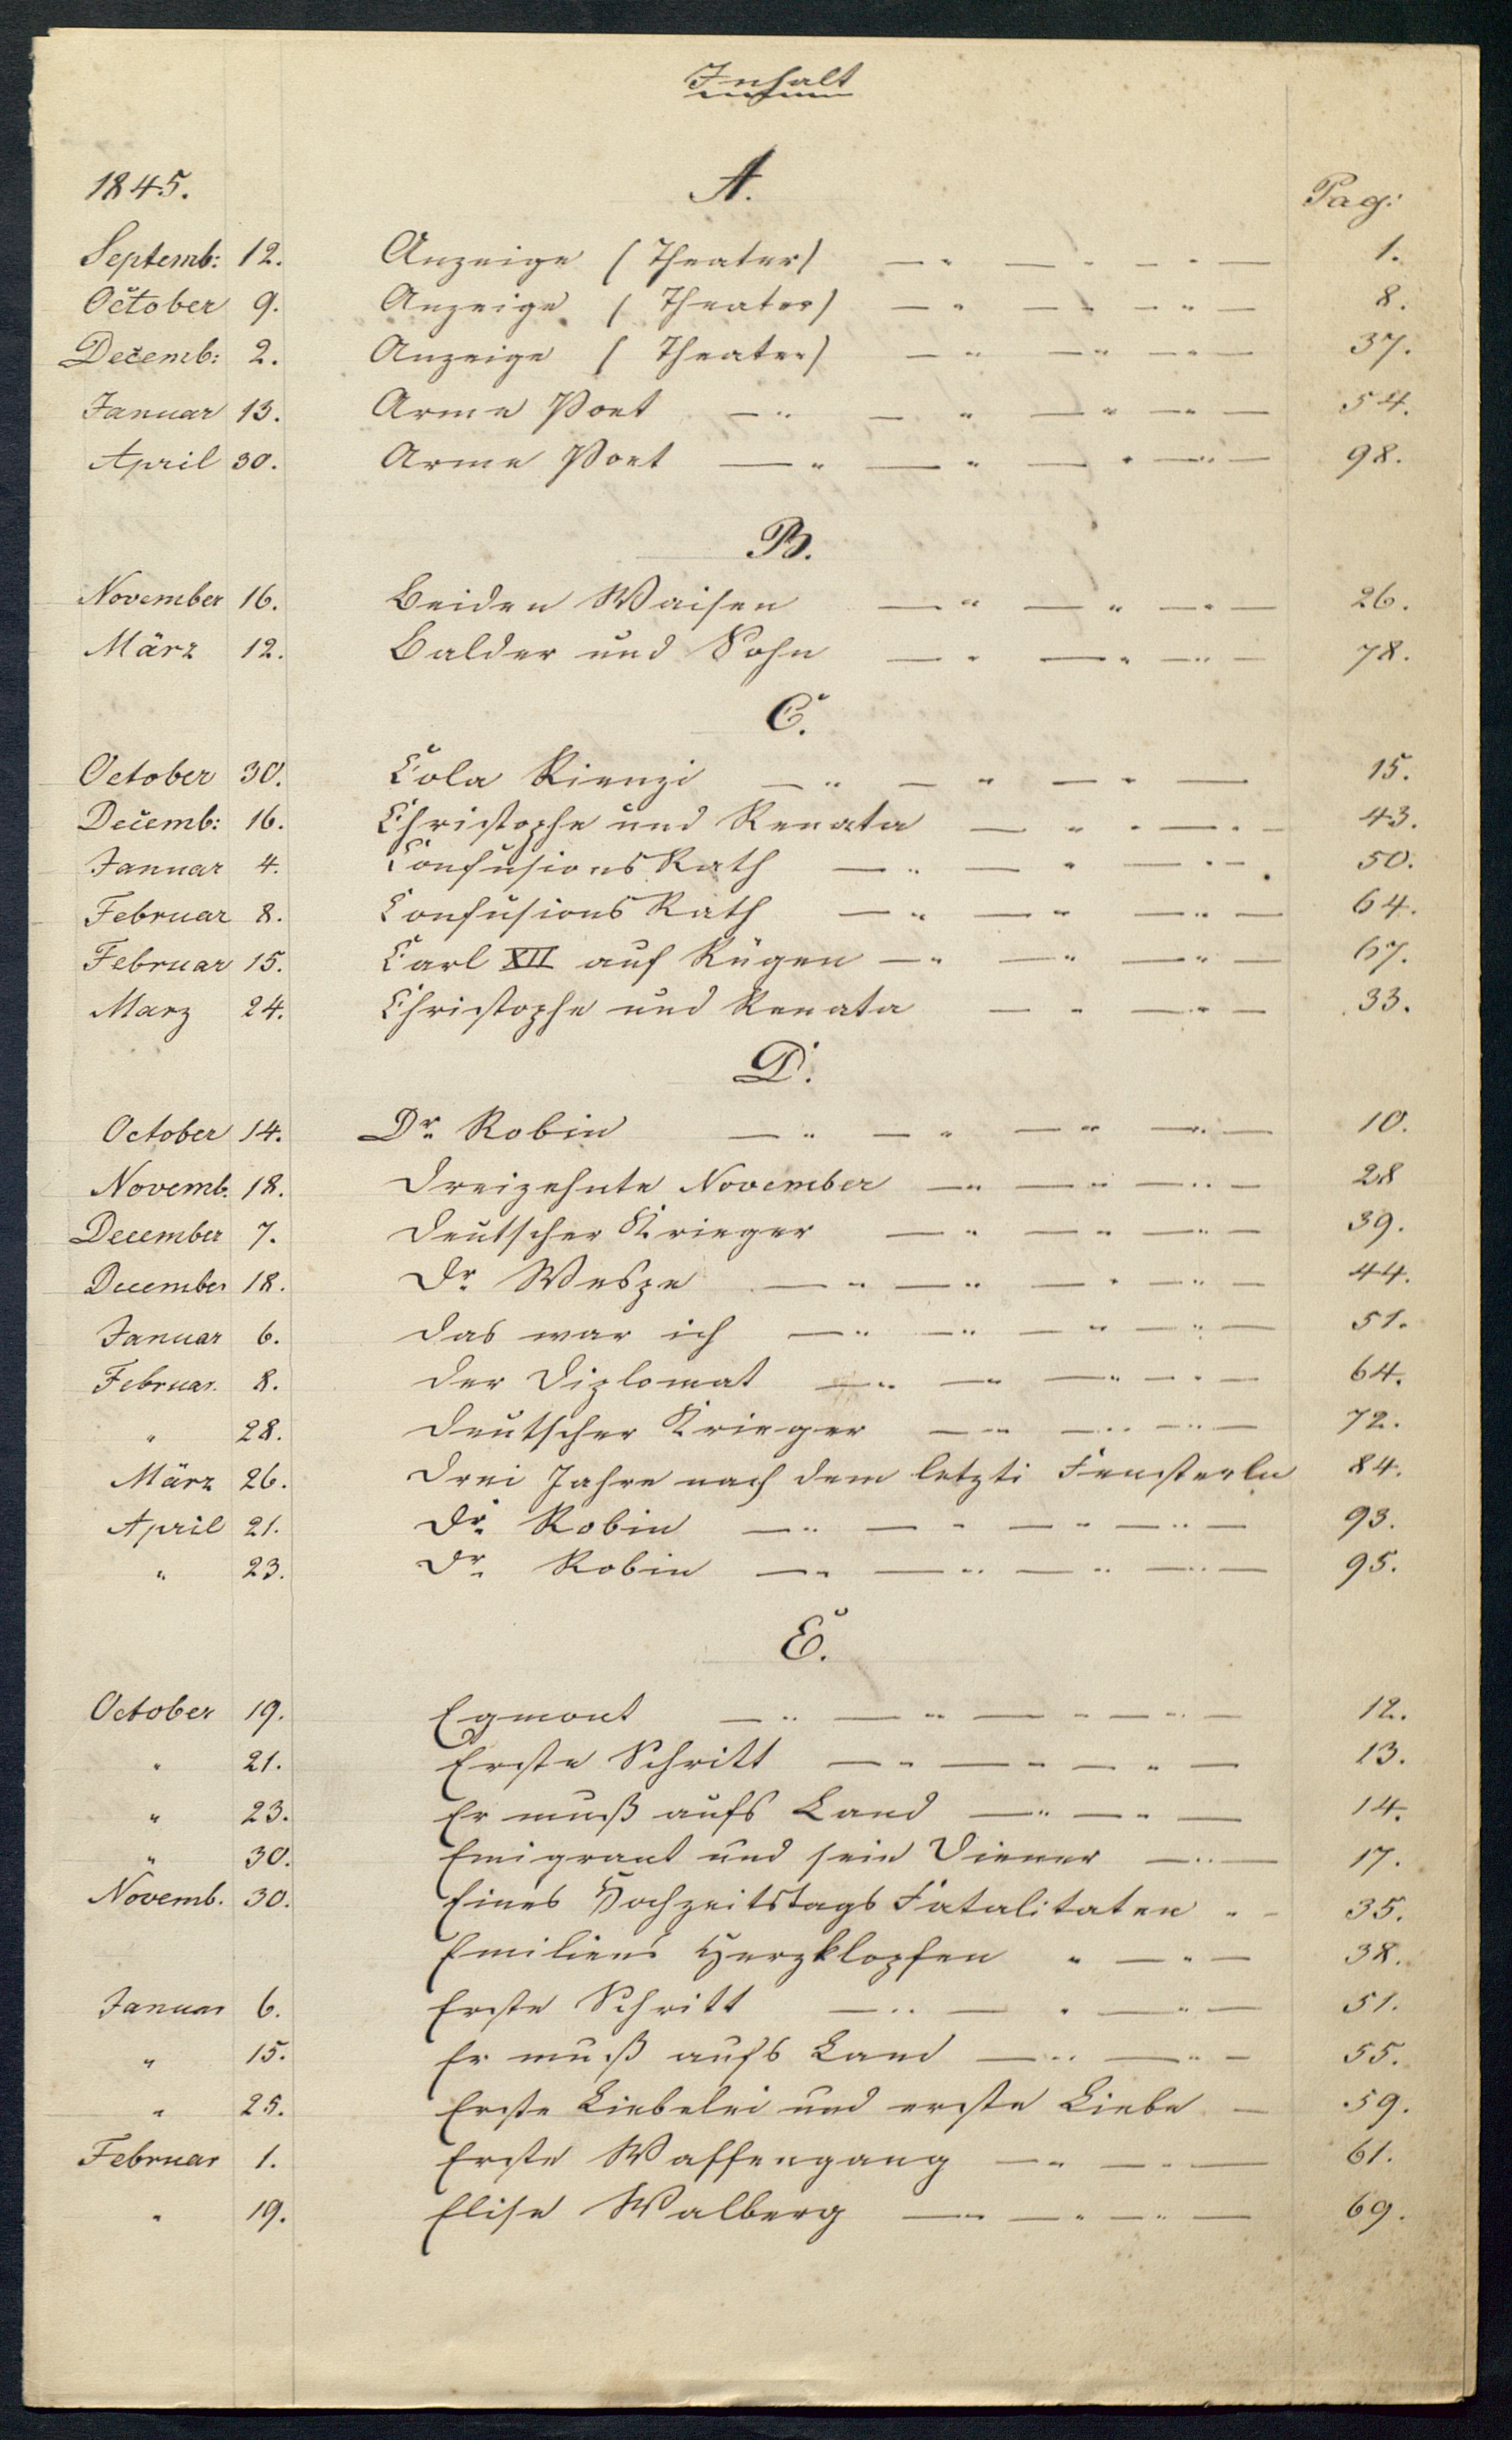 Inhalt
1845. A. Pag:
Septemb: 12. Anzeige (Theater) 1.
October 9. Anzeige (Theater) 8.
Decemb: 2. Anzeige (Theater) 37.
Januar 13. Arme Poet 54.
April 30. Arme Poet 98.
B.
November 16. Beiden Waisen 26.
März 12. Balder und Sohn 78.
C.
October 30. Cola Rienzi 15.
Decemb: 16. Christophe und Renata 43.
Januar 4. Confusions Rath 50.
Februar 8. Confusions Rath 64.
Februar 15. Carl XII auf Rügen 67.
Marz 24. Christophe und Renata 33.
D.
October 14. Dr. Robin 10.
Novemb. 18. Dreizehnte November 28
December 7. Deutscher Krieger 39.
December 18. Dr. Wespe 44.
Januar 6. Das war ich 51.
Februar. 8. Der Diplomat 64.
" 28. Deutscher Krieger 72.
März 26. Drei Jahre nach dem letzti Fensterln 84.
April 21. Dr. Robin 93.
" 23. Dr. Robin 95.
E.
October 19. Egmont 12.
" 21. Erste Schritt 13.
" 23. Er muß aufs Land 14.
" 30. Emigrant und sein Diener 17.
Novemb. 30. Eines Hochzeitstags Fatalitaten 35.
Emiliens Herzklopfen 38.
Januar 6. Erste Schritt 51.
" 15. Er muß aufs Land 55.
" 25. Erste Liebelei und erste Liebe 59.
Februar 1. Erste Waffengang 61.
" 19. Elise Walberg 69.